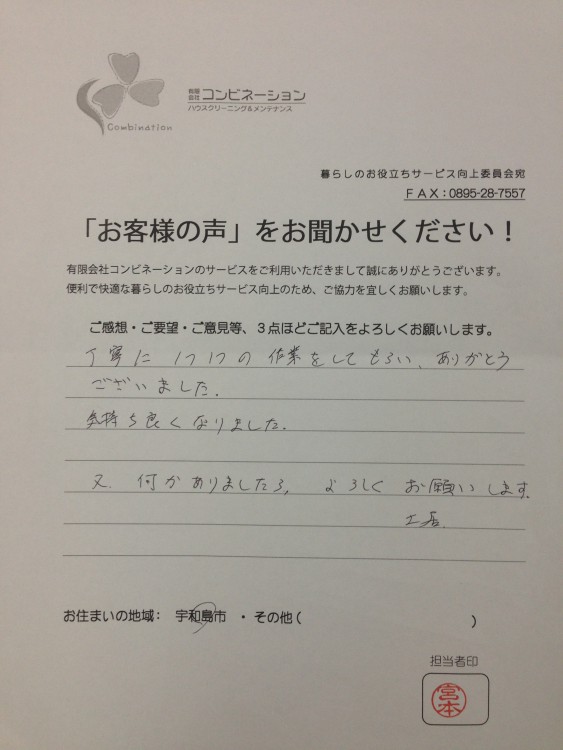 Combination
有限会社 コンビネーション
ハウスクリーニング&メンテナンス
暮らしのお役立ちサービス向上委員会宛
FAX:0895-28-7557
「お客様の声」をお聞かせください!
有限会社コンビネーションのサービスをご利用いただきまして誠にありがとうございます。
便利で快適な暮らしのお役立ちサービス向上のため、ご協力を宜しくお願いします。
ご感想・ご要望・ご意見等、3点ほどご記入をよろしくお願いします。
丁寧に1つ1つの作業をしてもらい、ありがとう
ございました。
気持ち良くなりました。
又、何かありましたら、よろしくお願いします。
お住まいの地域: 宇和島市 ・その他( )
担当者印
宮本